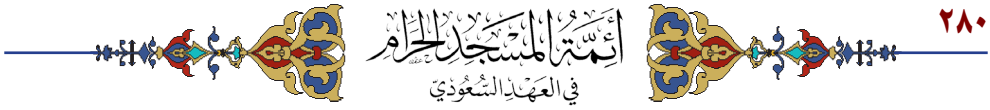 ٢٨٠
أَئِمَّةُ المَسْجِدِ الحَرَامِ
فِي العَهْدِ السُّعُودِيِّ